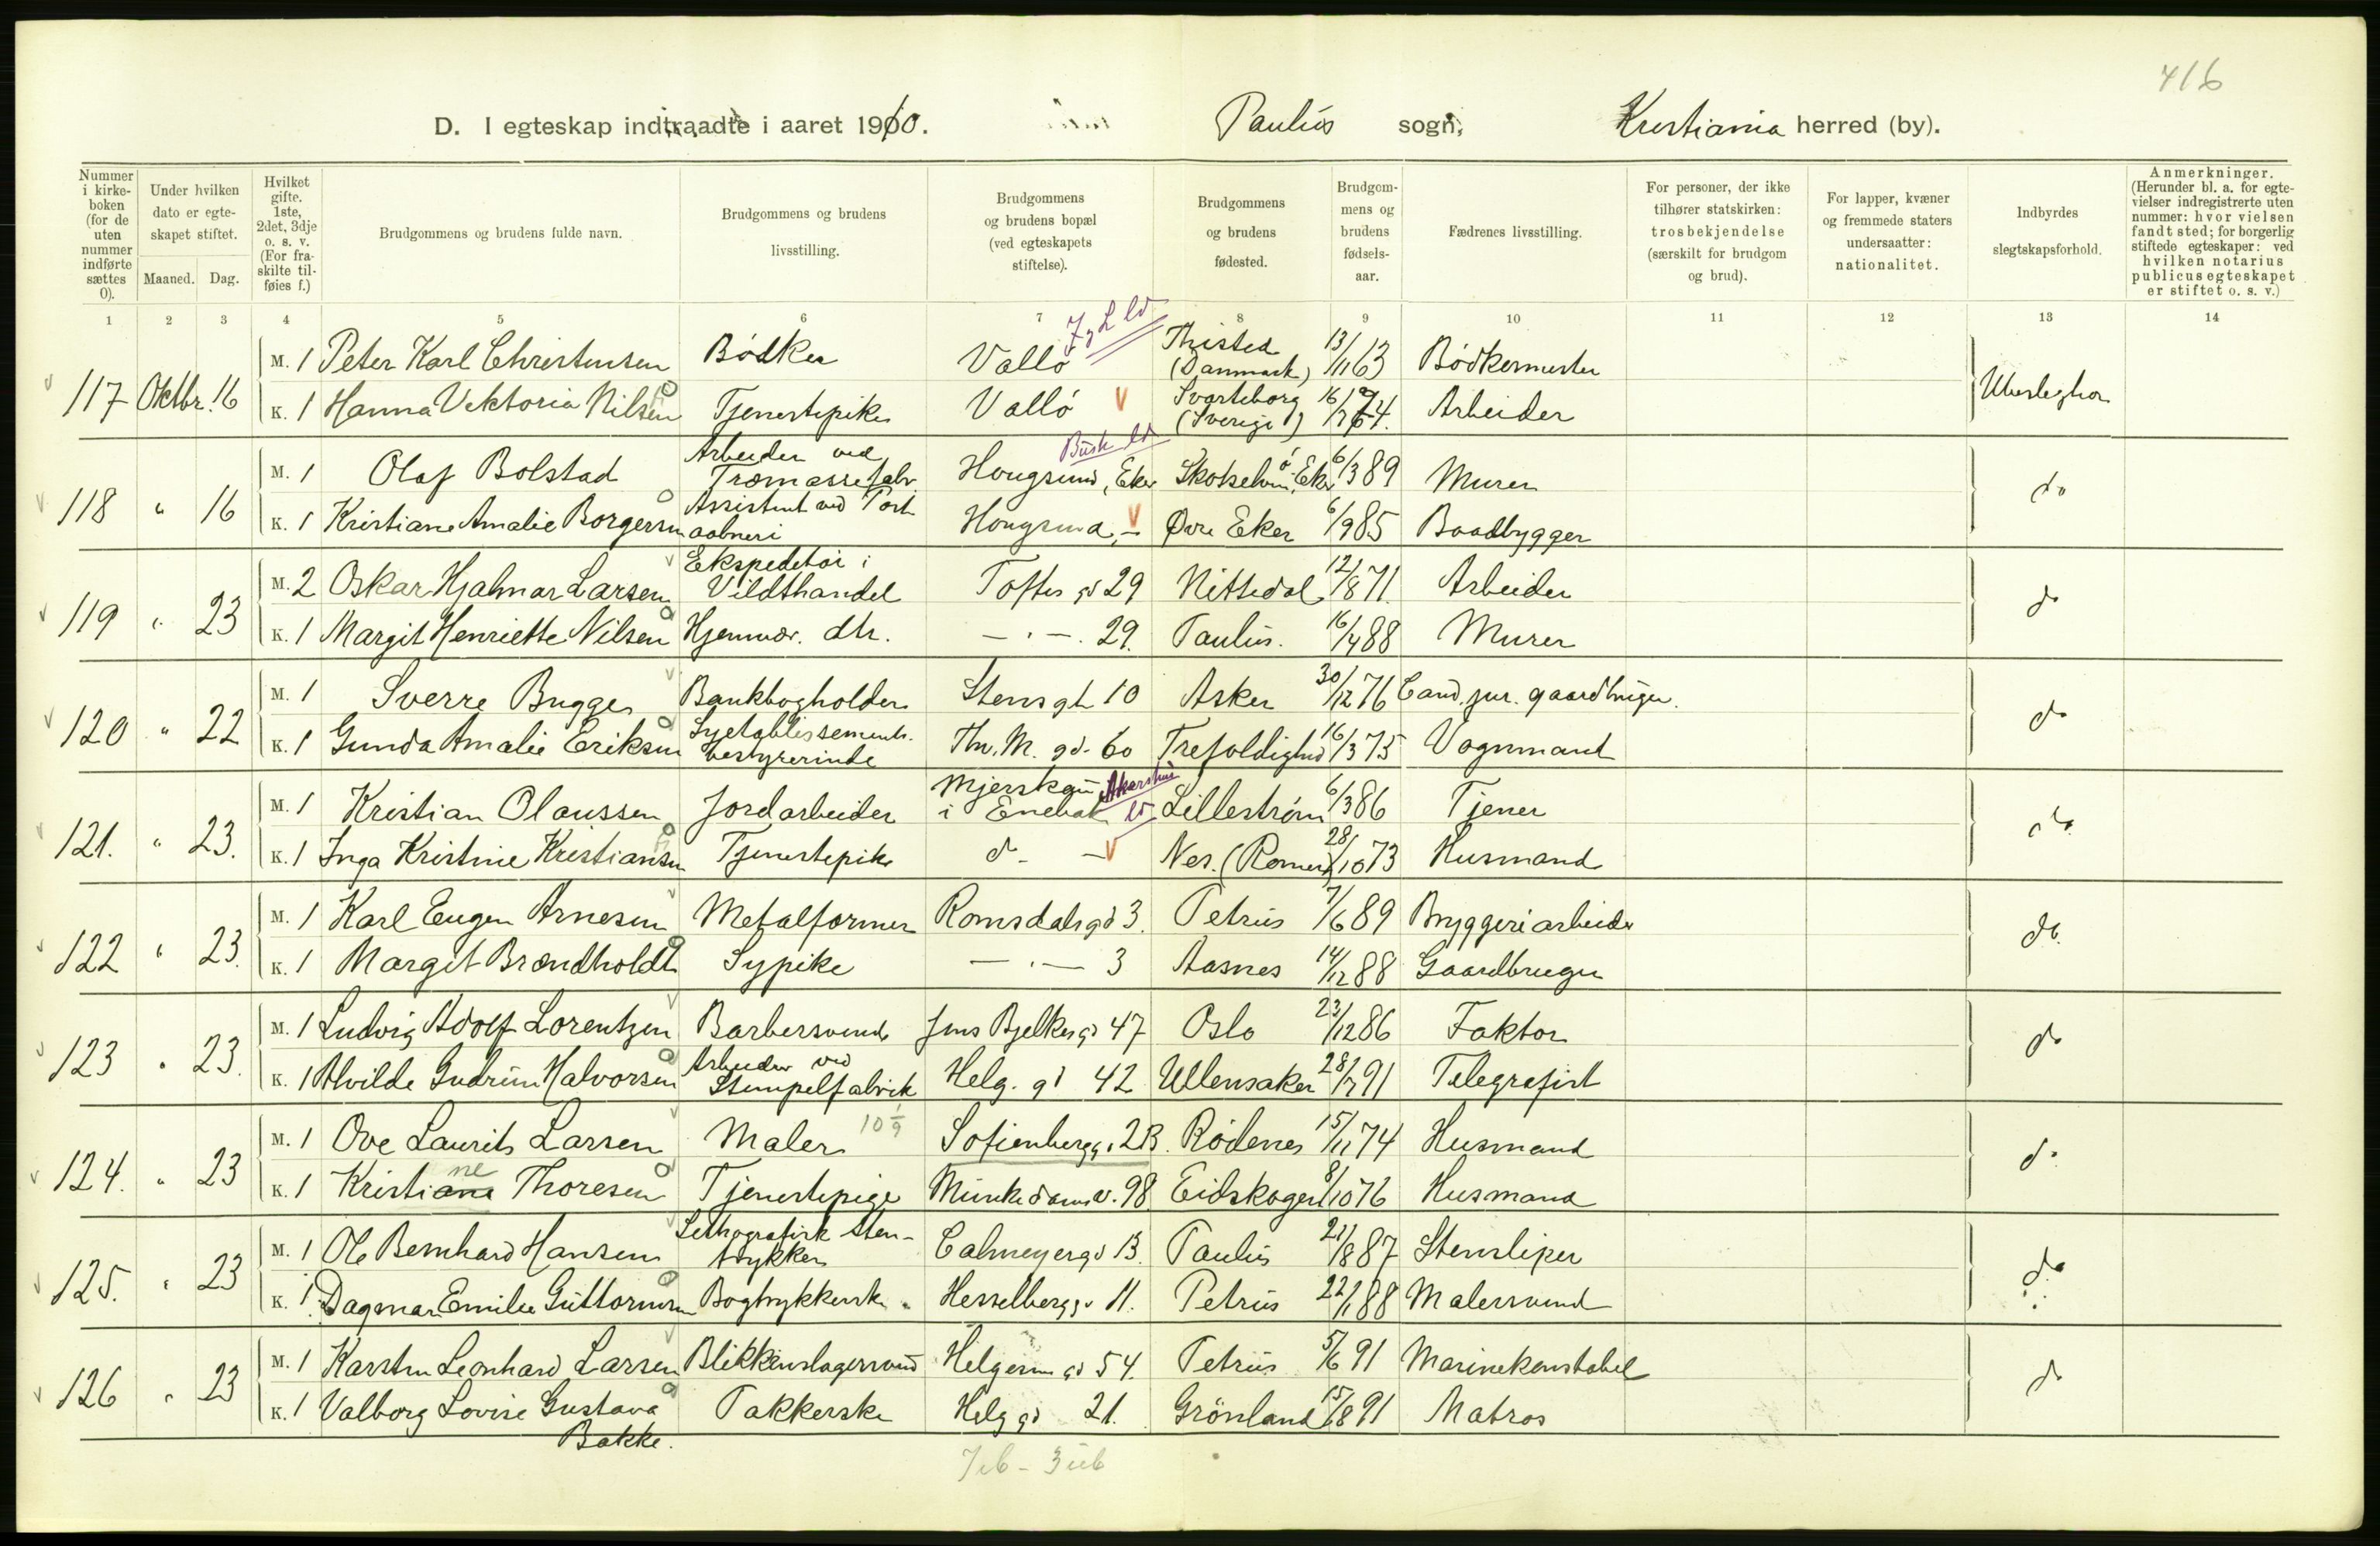 416
D. I egteskap indtraadte i aaret 1910. Paulus sogn, Kristiania herred (by).
Nummer i kirkeboken (for de uten nummer indførte sættes 0).
Under hvilken dato er egteskapet stiftet.
Maaned. Dag.
Hvilket gifte. 1ste, 2det, 3dje o. s. v. (For fraskilte tilføies f.)
Brudgommens og brudens fulde navn.
Brudgommens og brudens livsstilling.
Brudgommens og brudens bopæl (ved egteskapets stiftelse).
Brudgommens og brudens fødested.
Brudgommens og brudens fødselsaar.
Fædrenes livsstilling.
For personer, der ikke tilhører statskirken: trosbekjendelse (særskilt for brudgom og brud).
For lapper, kvæner og fremmede staters undersaatter: nationalitet.
Indbyrdes slegtskapsforhold.
Anmerkninger. (Herunder bl. a. for egtevielser indregistrerte uten nummer: hvor vielsen fandt sted; for borgerlig stiftede egteskaper: ved hvilken notarius publicus egteskapet er stiftet o. s. v.)
1 2 3 4 5 6 7 8 9 10 11 12 13 14
117 Oktbr. 16 M. 1 Peter Karl Christensen Bødker Vallø Thisted (Danmark) 13/11 63 Bødkermester
K. 1 Hanna Vektoria Nilsen Tjenestepike Vallø Svarteborg (Sverige) 16/7 74. Arbeider
118 " 16 M. 1 Olaf Bolstad Arbeider ved Træmassefabr. Hougsund, Eker Busk Skotselven, Ø. Eker 6/3 89 Murer do
K. 1 Kristiane Amalie Borgersen Assistent ved Postaabneri Hougsund, – Øvre Eker 6/9 85 Baadbygger
119 " 23 M. 2 Oskar Hjalmar Larsen Ekspeditør i Vildthandel Toftes gd 29 Nittedal 12/8 71. Arbeider do
K. 1 Margit Henriette Nilsen Hjemmev. dtr. – " – 29. Paulus. 16/4 88 Murer
120 " 22 M. 1 Sverre Bugge Bankbogholder Stensgt. 10 Asker 30/12 76 Cand. jur. gaardbruger. do
K. 1 Gunda Amalie Eriksen Syetablissements. bestyrerinde Thv. M. gd. 60 Trefoldighed 16/3 75 Vognmand
121. " 23. M. 1 Kristian Olaussen Jordarbeider i Enebak Akershus Lillestrøm 6/3 86 Tjener do
K. 1 Inga Kristine Kristiansen Tjenestepike do – Nes. (Romer.) 28/10 73 Husmand
122 " 23. M. 1 Karl Eugen Arnesen Metalformer Romsdals gd 3. Petrus 7/6 89 Bryggeriarbeider do.
K. 1 Margit Brændholdt Sypike – " – 3 Aasnes 14/12 88 Gaardbruger
123 " 23. M. 1 Ludvig Adolf Lorentzen Barbersvend Jens Bjelkes gd 47 Oslo 23/12 86 Faktor do
K. 1 Alvilde Gudrun Halvorsen Arbeider ved Stempelfabrik Helg. gd 42 Ullensaker 28/7 91 Telegrafist
124. " 23 M. 1 Ove Laurits Larsen Maler 10 1/9 Sofienbergg. 2B. Rødenes 15/11 74 Husmand do
K. 1 Kristiane ne Thoresen Tjenestepige Munkedamsv. 98. Eidskogen 8/10 76 Husmand
125. " 23 M. 1 Ole Bernhard Hansen Lithografisk Stentrykker Calmeyergd 13. Paulus 21/8 87 Stensliper do
K. 1 Dagmar Emilie Guttormsen Bogtrykkerske Hesselbergg. 11. Petrus 22/1 88 Malersvend
126 " 23 M. 1 Karsten Leonhard Larsen Blikkenslagersvend Helgesens gd 54. Petrus 5/6 91 Marinekonstabel do
K. 1 Valborg Lovise Gustava Bakke. Pakkerske Helg gd 21. Grönland 15/8 91 Matros